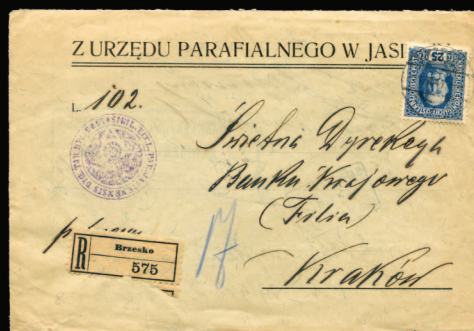 Z URZĘDU PARAFIALNEGO W JASI
25
L. 102.
Świetna Dyrekcya
Banku Krajowego
(Filia)
17
R
Brzesko
575
Kraków